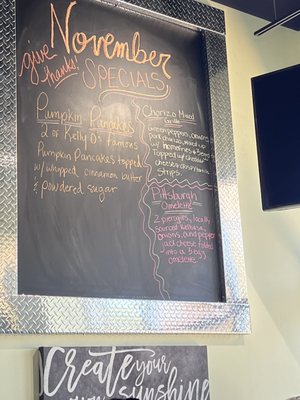 November
give thanks!
Specials
Pumpkin Pancakes
2 of Kelly O's famous
Pumpkin Pancakes topped
w/ whipped cinnamon butter
& powdered sugar
Chorizo Mixed
Grille
Green peppers, onions,
Pork chorizo, mixed up
w/ homefries &
Topped w/ cheddar
cheese & crispy tortilla
strips.
Pittsburgh
Omelette
2 pierogies, locally
sourced kielbasa,
onions, and pepper
jack cheese folded
into a 3 egg
omelette
Create your
own sunshine